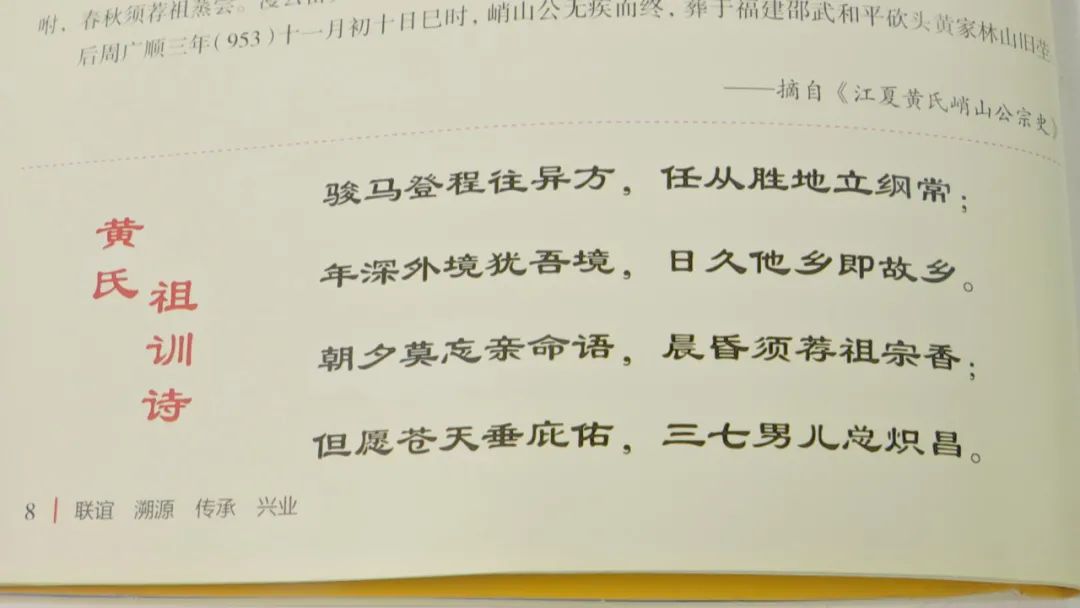 咐，春秋须荐祖蒸尝。
后周广顺三年(953)十一月初十日巳时，峭山公无疾而终，葬于福建邵武和平砍头黄家林山旧茔
——摘自《江夏黄氏峭山公宗史》
黄氏
祖训诗
骏马登程往异方，任从胜地立纲常；
年深外境犹吾境，日久他乡即故乡。
朝夕莫忘亲命语，晨昏须荐祖宗香；
但愿苍天垂庇佑，三七男儿总炽昌。
8 | 联谊 溯源 传承 兴业